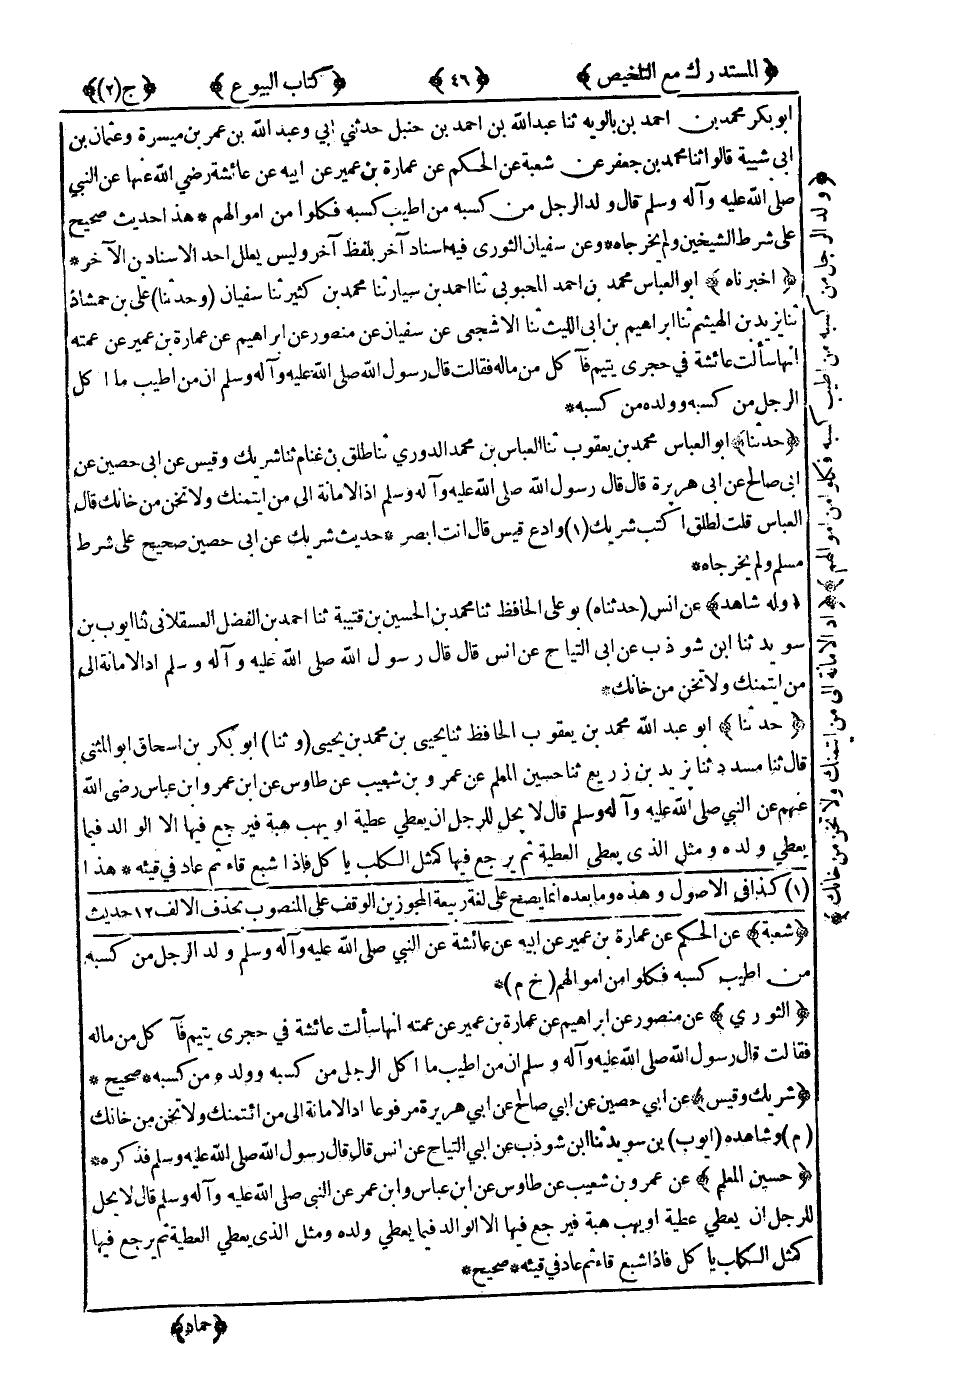 ﴿المستدرك مع التلخيص﴾ ﴿٤٦﴾ ﴿كتاب البيوع﴾ ﴿ج(٢)﴾
ابو بكر محمد بن احمد بن بالويه ثنا عبد الله بن احمد بن حنبل حدثني ابي وعبد الله بن عمر بن ميسرة وعثمان بن
ابى شيبة قالوا ثنا محمد بن جعفر عن شعبة عن الحكم عن عمارة بن عمير عن ابيه عن عائشة رضي الله عنها عن النبي
صلى الله عليه وآله وسلم قال ولد الرجل من كسبه من اطيب كسبه فكلوا من اموالهم * هذا حديث صحيح
على شرط الشيخين ولم يخرجاه * وعن سفيان الثورى فيه اسناد آخر بلفظ آخر وليس يعلل احد الاسنادين الآخر *
﴿اخبرناه﴾ ابو العباس محمد بن احمد المحبوبى ثنا احمد بن سيار ثنا محمد بن كثير ثنا سفيان (وحدثنا) على بن حمشاذ
ثنا يزيد بن الهيثم ثنا ابراهيم بن ابى الليث ثنا الاشجعى عن سفيان عن منصور عن ابراهيم عن عمارة بن عمير عن عمته
انها سألت عائشة في حجرى يتيم فآ كل من ماله فقالت قال رسول الله صلى الله عليه وآله وسلم ان من اطيب ما اكل
الرجل من كسبه وولده من كسبه *
﴿حدثنا﴾ ابو العباس محمد بن يعقوب ثنا العباس بن محمد الدوري ثنا طلق بن غنام ثنا شريك وقيس عن ابى حصين عن
ابى صالح عن ابى هريرة قال قال رسول الله صلى الله عليه وآله وسلم اد الامانة الى من ايتمنك ولا تخن من خانك قال
العباس قلت لطلق اكتب شريك (١) وادع قيس قال انت ابصر * حديث شريك عن ابى حصين صحيح على شرط
مسلم ولم يخرجاه *
﴿وله شاهد﴾ عن انس (حدثناه) بو على الحافظ ثنا محمد بن الحسين بن قتيبة ثنا احمد بن الفضل العسقلانى ثنا ايوب بن
سويد ثنا ابن شوذب عن ابى التياح عن انس قال قال رسول الله صلى الله عليه وآله وسلم اد الامانة الى
من ايتمنك ولا تخن من خانك *
﴿حدثنا﴾ ابو عبد الله محمد بن يعقوب الحافظ ثنا يحيى بن محمد بن يحيى (وثنا) ابو بكر بن اسحاق ابو المثنى
قال ثنا مسدد ثنا يزيد بن زريع ثنا حسين المعلم عن عمرو بن شعيب عن طاوس عن ابن عمر وابن عباس رضى الله
عنهم عن النبي صلى الله عليه وآله وسلم قال لا يحل للرجل ان يعطي عطية او يهب هبة فيرجع فيها الا الوالد فيما
يعطي ولده ومثل الذى يعطى العطية ثم يرجع فيها كمثل الكلب ياكل فاذا شبع قاء ثم عاد في قيئه * هذا
(١) كذا في الاصول وهذه وما بعده انما يصح على لغة ربيعة المجوزين الوقف على المنصوب بحذف الالف ١٢ حديث
﴿شعبة﴾ عن الحكم عن عمارة بن عمير عن ابيه عن عائشة عن النبي صلى الله عليه وآله وسلم ولد الرجل من كسبه
من اطيب كسبه فكلوا من اموالهم (خ م) *
﴿الثوري﴾ عن منصور عن ابراهيم عن عمارة بن عمير عن عمته انها سألت عائشة في حجرى يتيم فآ كل من ماله
فقالت قال رسول الله صلى الله عليه وآله وسلم ان من اطيب ما اكل الرجل من كسبه وولده من كسبه * صحيح *
﴿شريك وقيس﴾ عن ابي حصين عن ابي صالح عن ابي هريرة مرفوعا اد الامانة الى من ائتمنك ولا تخن من خانك
(م) وشاهده (ايوب) بن سويد ثنا ابن شوذب عن ابي التياح عن انس قال قال رسول الله صلى الله عليه وسلم فذكره *
﴿حسين المعلم﴾ عن عمرو بن شعيب عن طاوس عن ابن عباس وابن عمر عن النبى صلى الله عليه وآله وسلم قال لا يحل
للرجل ان يعطي عطية او يهب هبة فيرجع فيها الا الوالد فيما يعطي ولده ومثل الذى يعطي العطية ثم يرجع فيها
كمثل الكلب ياكل فاذا شبع قاء ثم عاد في قيئه * صحيح *
﴿حماد﴾
﴿ولد الرجل من كسبه من اطيب كسبه فكلوا من اموالهم﴾ ﴿اد الامانة الى من ائتمنك ولا تخن من خانك﴾